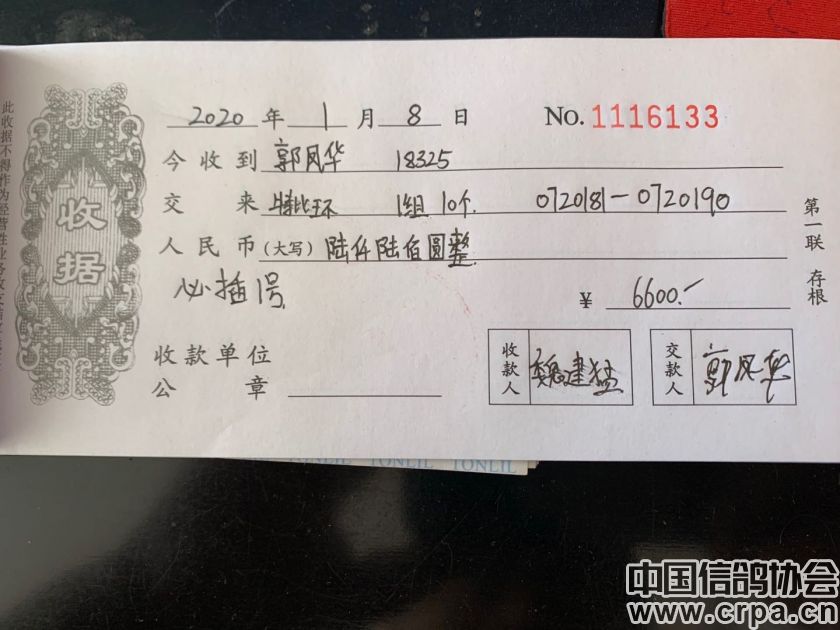 2020 年 1 月 8 日 NO. 1116133
今收到 郭凤华 18325
交来 特比环 1组 10个. 0720181-0720190
人民币(大写) 陆仟陆佰圆整
必插1号. ¥ 6600.-
收款单位
公章
收款人 魏建猛
交款人 郭凤华
收据
第一联 存根
此收据不得作为经营性业务收支
TONLIL TONLIL
中国信鸽协会
www.crpa.cn